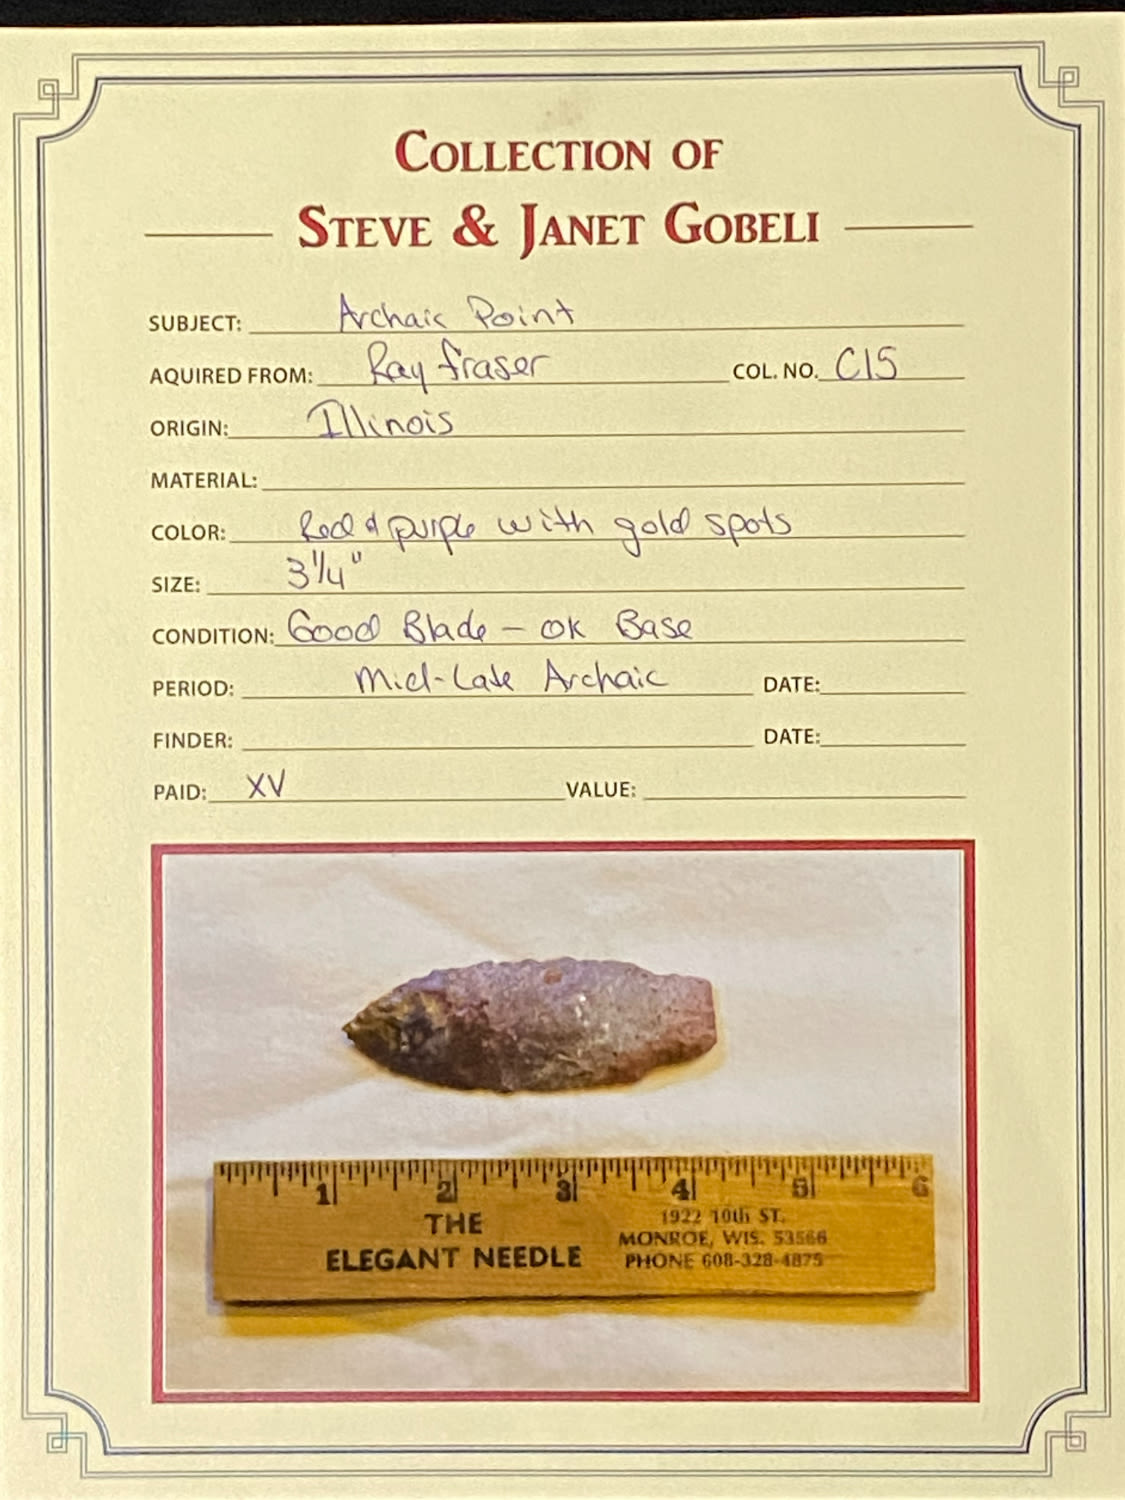 COLLECTION OF
STEVE & JANET GOBELI
SUBJECT: Archaic Point
AQUIRED FROM: Ray Fraser COL. NO. C15
ORIGIN: Illinois
MATERIAL:
COLOR: Red & purple with gold spots
SIZE: 3 1/4"
CONDITION: Good Blade - OK Base
PERIOD: Mid-Late Archaic DATE:
FINDER: DATE:
PAID: XV VALUE:
1 2 3 4 5 6
THE
ELEGANT NEEDLE
1922 10th ST.
MONROE, WIS. 53566
PHONE 608-328-4875